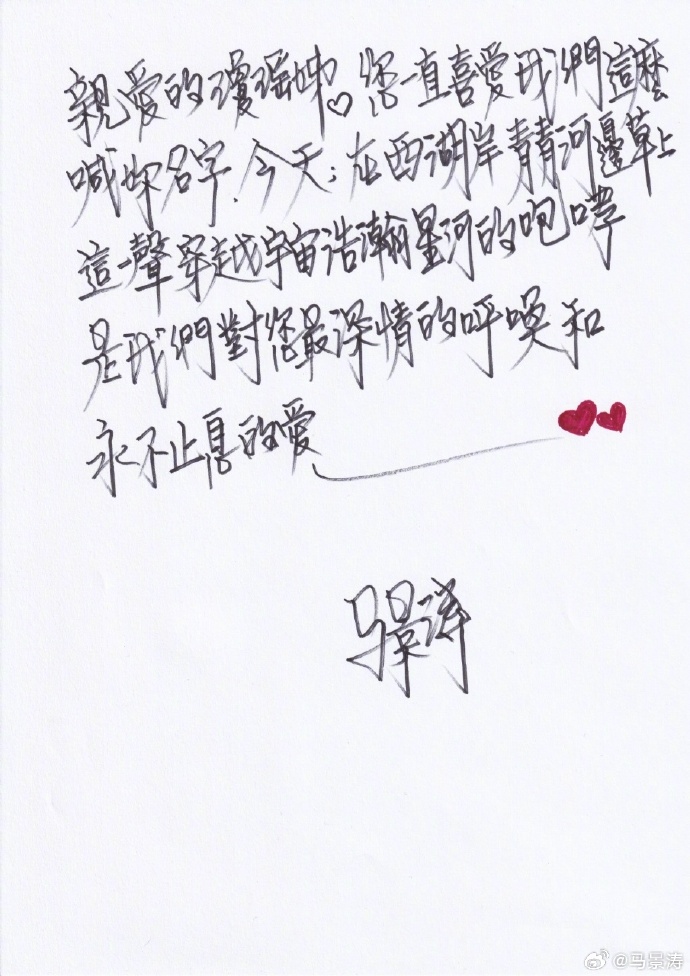 親愛的瓊瑤姊♡您一直喜愛我們這麼
喊妳名字.今天:在西湖岸青青河邊草上
這一聲穿越宇宙浩瀚星河的咆哮
是我們對您最深情的呼喚和
永不止息的愛
马景涛
@马景涛